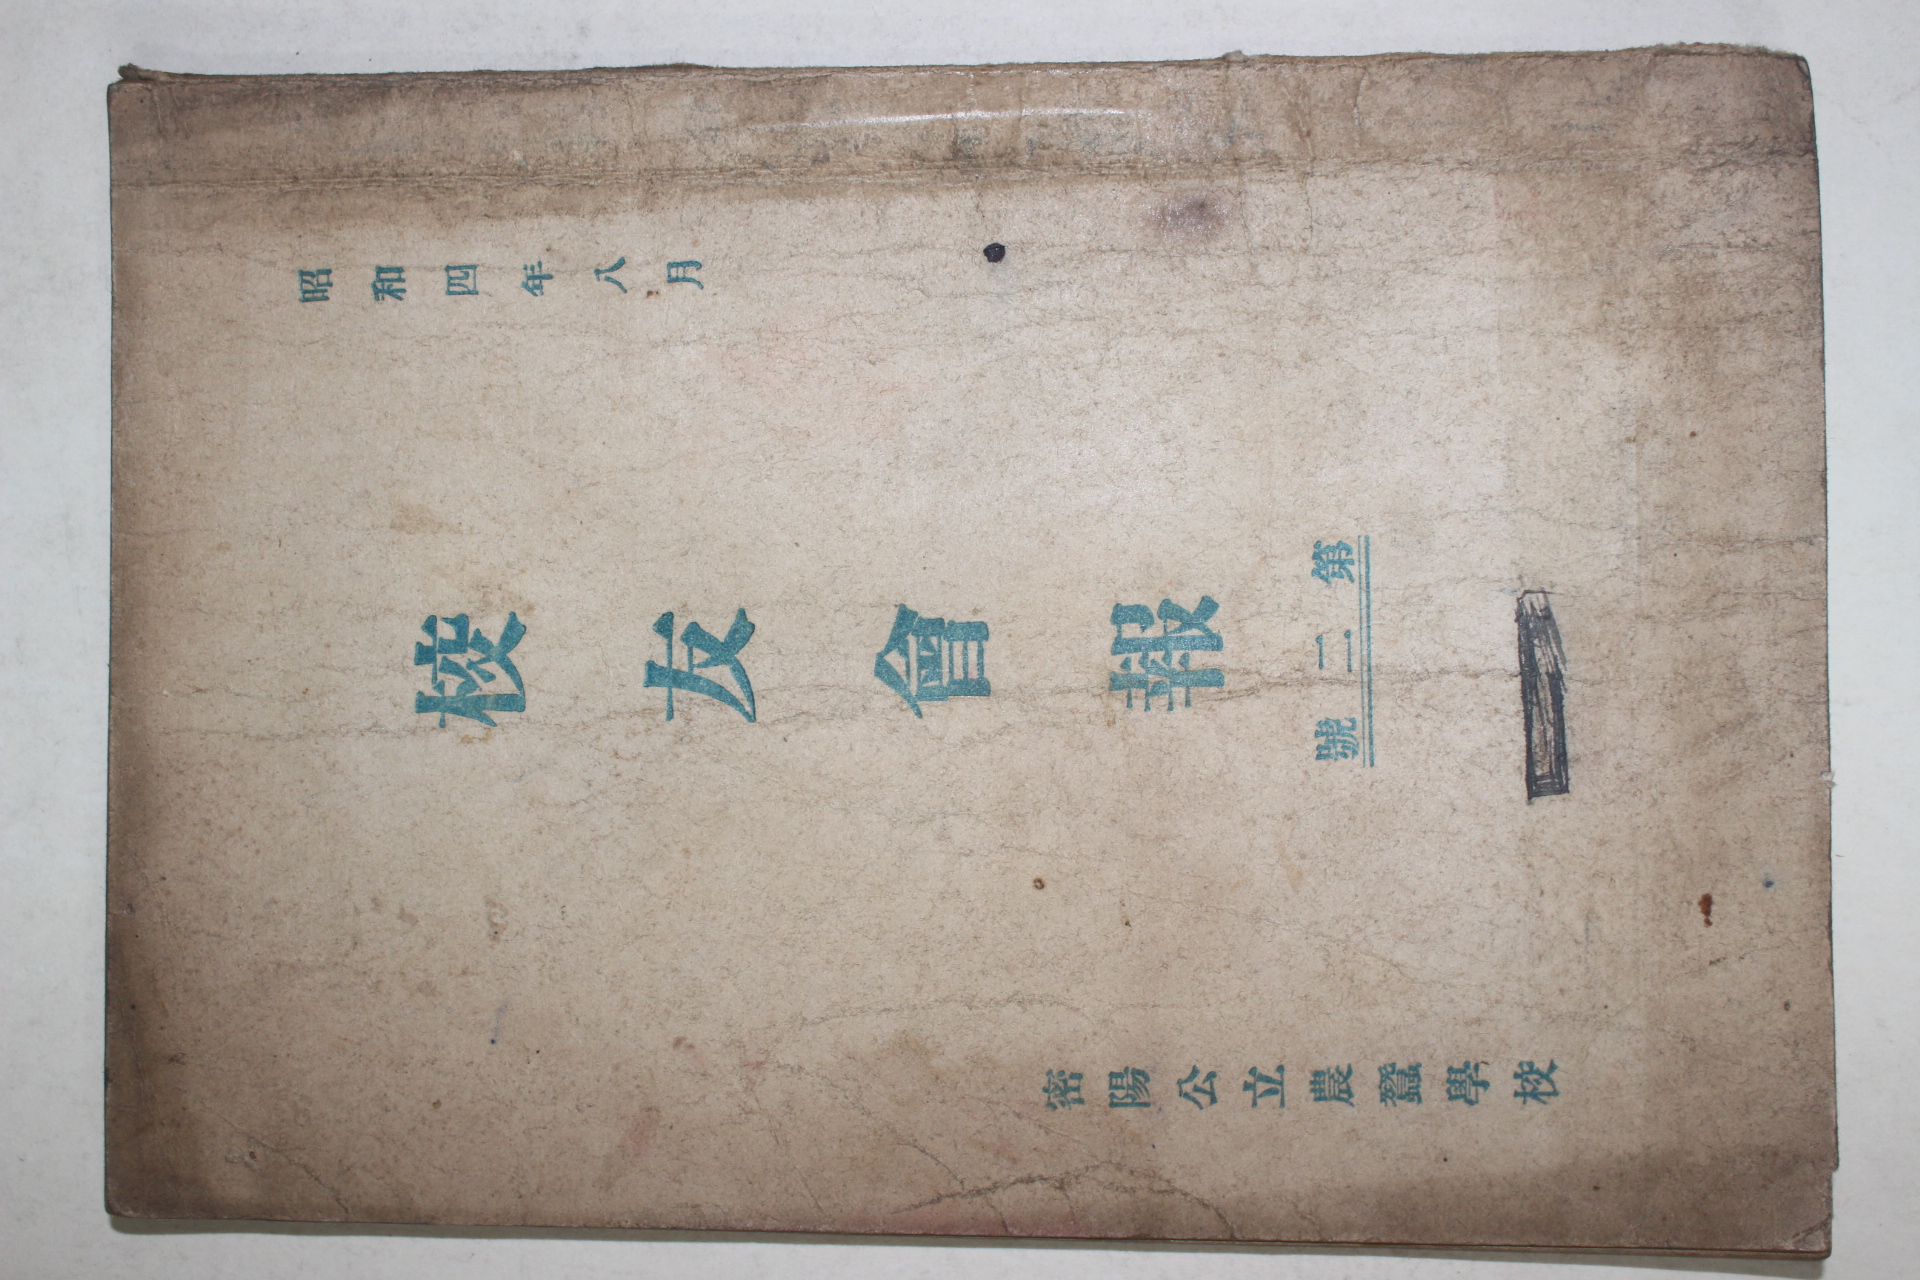 昭和四年八月
校友會報
第二號
密陽公立農蠶學校